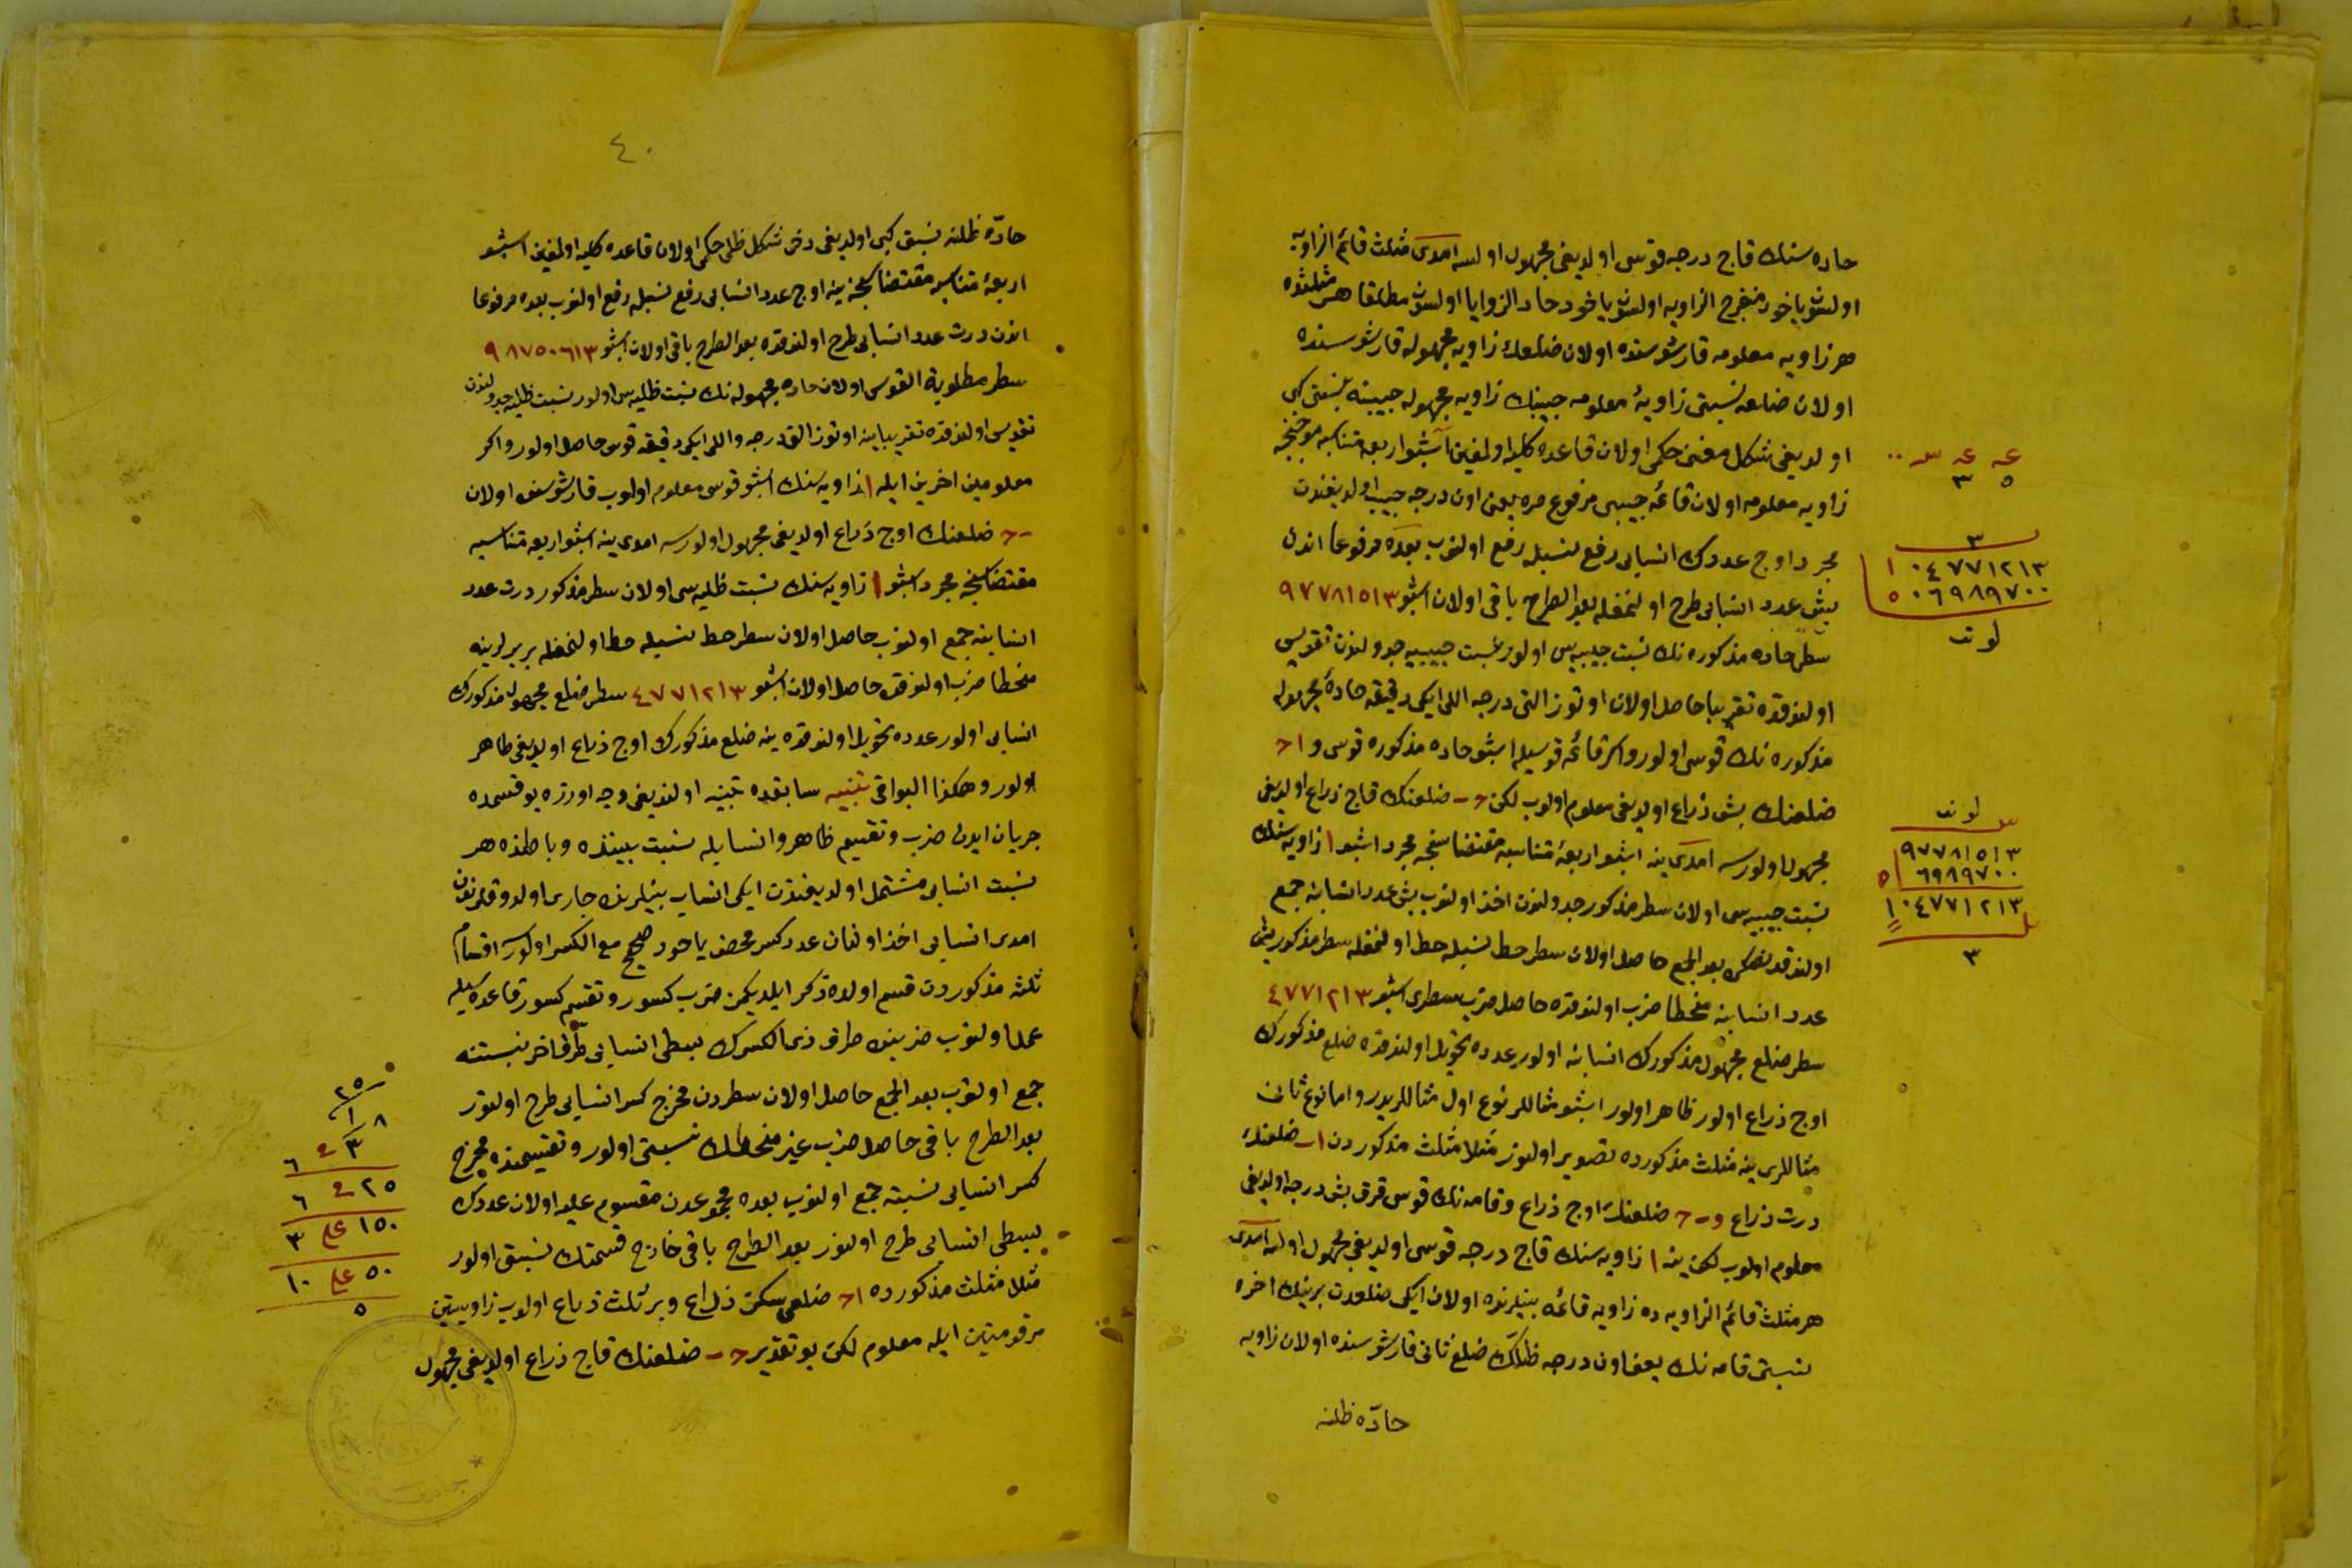 حاده سنك قاچ درجه قوسى اولديغى مجهول اولسه امدى مثلث قائم الزاويه
اولسون ياخود منفرج الزاويه اولسون ياخود حاد الزوايا اولسون مطلقا هر مثلثده
هر زاويه معلومه قارشوسنده اولان ضلعك زاويه مجهوله قارشوسنده
اولان ضلعه نسبتى زاويۀ معلومه جيبنك زاويه مجهوله جيبنه نسبتى كبى
اولديغى شكل مغنى حكمى اولان قاعده كليه اولمغين اشبو اربعه متناسبه موجبنجه
زاويه معلومه اولان قائمه جيبى مرفوع مره يعنى اون درجه جيب اولديغندن
مجرد اوج عددك انسابى رفع نسبله رفع اولنوب بعده مرفوعا اندن
بش عدد انسابى طرح اولنمغله بعد الطرح باقى اولان اشبو ٩٧٧٨١٥١٣
سطر حاده مذكوره نك نسبت جيبيه سى اولور نسبت جيبيه جدولندن تقويس
اولندقده تقريبا حاصل اولان اوتوز التى درجه اللى ايكى دقيقه حادۀ مجهوله
مذكوره نك قوسى اولور واكر قائمه قوسيله اشبو حاده مذكوره قوسى و ا ح
ضلعنك بش ذراع اولديغى معلوم اولوب لكن ح ب ضلعنك قاچ ذراع اولديغى
مجهول اولورسه امدى ينه اشبو اربعۀ متناسبه مقتضاسنجه مجرد اشبو ا زاويه سنك
نسبت جيبيه سى اولان سطر مذكور جدولندن اخذ اولنوب بش عدد انسابنه جمع
اولندقدنصكره بعد الجمع حاصل اولان سطر حط نسبله حط اولنمغله سطر مذكور بش
عدد انسابنه منحطا ضرب اولندقده حاصل ضرب سطرى اشبو ٤٧٧١٢١٣
سطر ضلع مجهول مذكورك انسابنه اولور عدده تحويل اولندقده ضلع مذكورك
اوج ذراع اولور ظاهر اولور اشبو مثاللر نوع اول مثاللريدر واما نوع ثانى
مثاللرى ينه مثلث مذكورده تصوير اولنور مثلا مثلث مذكوردن ا ب ضلعنك
درت ذراع و ب ح ضلعنك اوج ذراع وقامه نك قوسى قرق بش درجه اولديغى
معلوم اولوب لكن ينه ا زاويه سنك قاچ درجه قوسى اولديغى مجهول اولسه امدى
هر مثلث قائم الزاويه ده زاويه قائمه بينلرنده اولان ايكى ضلعدن برينك اخره
نسبتى قامه نك يعنى اون درجه ظلنك ضلع ثانى قارشوسنده اولان زاويه
حادّه ظلنه
عہ عہ سہ ٠٠
٥ ٣
٣
١ ٠٤٧٧١٢١٣
٥ ٠٦٩٨٩٧٠٠
لو نت
لو نت
٩٧٧٨١٥١٣
٥ ٦٩٨٩٧٠٠
١ ٠٤٧٧١٢١٣
٣
٤٠
حادّه ظلنه نسبتى كبى اولديغى دخى شكل ظلى حكمى اولان قاعده كليه اولمغين اشبو
اربعۀ متناسبه مقتضاسنجه ينه اوج عدد انسابى رفع نسبله رفع اولنوب بعده مرفوعا
اندن درت عدد انسابى طرح اولندقده بعد الطرح باقى اولان اشبو ٩٨٧٥٠٦١٣
سطر مطلوبة القوس اولان حاده مجهوله نك نسبت ظليه سى اولور نسبت ظليه جدولندن
تقويس اولندقده تقريبا ينه اوتوز التى درجه واللى ايكى دقيقه قوس حاصل اولور واكر
معلومين اخرين ايله ا زاويه سنك اشبو قوسى معلوم اولوب قارشوسنده اولان
ب ح ضلعنك اوج ذراع اولديغى مجهول اولورسه امدى ينه اشبو اربعه متناسبه
مقتضاسنجه مجرد اشبو ا زاويه سنك نسبت ظليه سى اولان سطر مذكور درت عدد
انسابنه جمع اولنوب حاصل اولان سطر حط نسبله حط اولنمغله بربرلرينه
منحطا ضرب اولندقده حاصل اولان اشبو ٤٧٧١٢١٣ سطر ضلع مجهول مذكورك
انسابى اولور عدده تحويل اولندقده ينه ضلع مذكورك اوج ذراع اولديغى ظاهر
اولور وهكذا البواقى تنبيه سابقده تنبيه اولنديغى وجه اوزره بو قسمده
جريان ايدن ضرب وتقسيم ظاهر وانسابله نسبت بيننده وباطنده هر
نسبت انسابى مشتمل اولديغندن ايكى انساب بينلرنده جارى اولدوقلرندن
امدى انسابى اخذ اولنان عدد كسر محض ياخود صحيح مع الكسر اولورسه اقسام
ثلثه مذكوردن قسم اولده ذكر ايلديكمز ضرب كسور وتقسيم كسور قاعده سيله
عمل اولنوب ضربنده طرف ذى الكسرك بسطى انسابى طرف اخر نسبتنه
جمع اولنوب بعد الجمع حاصل اولان سطردن مخرج كسر انسابى طرح اولنور
بعد الطرح باقى حاصل ضرب غير منحطك نسبتى اولور وتقسيمنده مخرج
كسر انسابى نسبته جمع اولنوب بعده مجموعدن مقسوم عليه اولان عددك
بسطى انسابى طرح اولنور بعد الطرح باقى خارج قسمتك نسبتى اولور
مثلا مثلث مذكورده ا ح ضلعى سكز ذراع وبر ثلث ذراع اولوب زاويتين
مرقومتين ايله معلوم لكن بو تقدير ح ب ضلعنك قاچ ذراع اولديغى مجهول
٢٥
٨ ١
٣ ٦
٢٥ ٦
١٥٠ على ٣
٥٠ على ١٠
٥